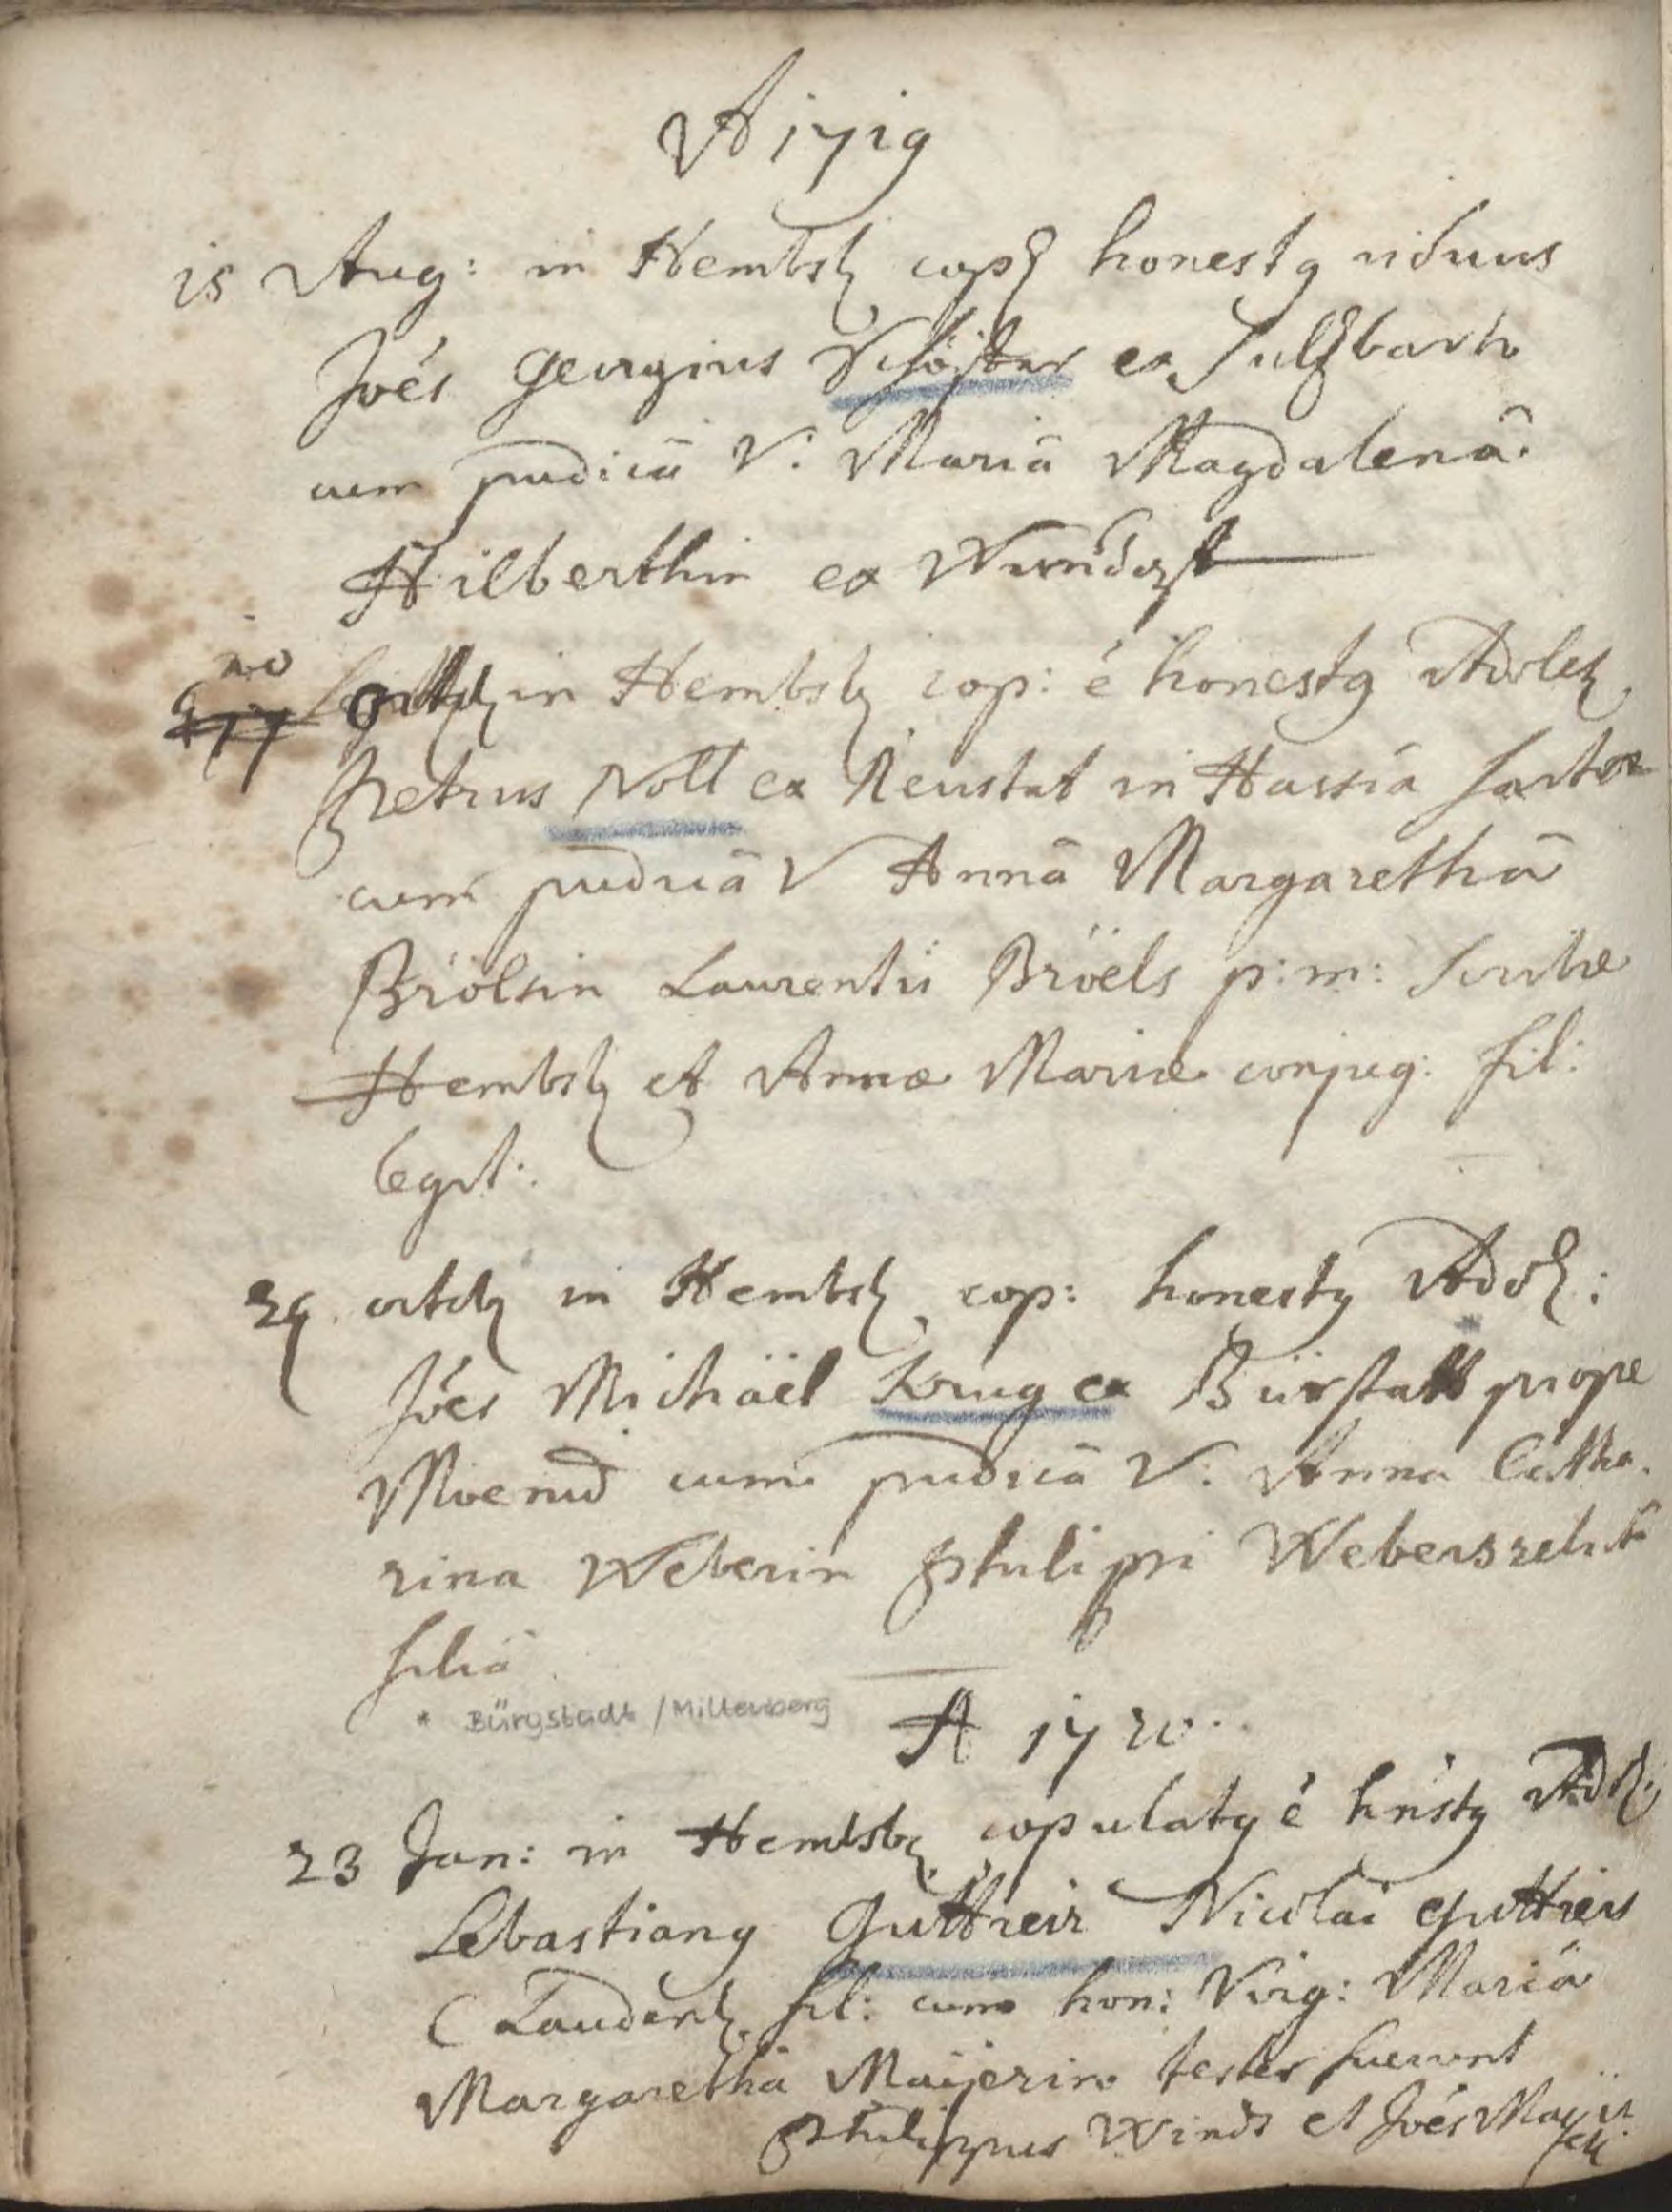 A 1719
15 Aug: in Hembsb cop: honestq viduus
Joés Georgius ex Sultzbach
cum pudicâ V: Mariâ Magdalenâ
Hilberthin ex
in Hembsb cop: é honestq Adoles
Petrus Noll ex Neustat in Hassia sartor
cum pudicâ V Annâ Margarethâ
Brölsin Laurentii Bröels p: m:
Hembsb et Annæ Mariæ conjug: fil:
legit:
29 octob in Hembsb cop: honestq Adol:
Joés Michäel Krug ex Bürstatt prope
Moenu cum pudicâ V: Anna Catha.
rina Weberin Philippi Webers relictâ
filiâ
* Bürgstadt / Miltenberg
A 1720.
23 Jan: in Hembsb copulatq é hnstq Adol:
Sebastianq Guttreir Nicolai Guttreirs
Laudenb fil: cum hon: Virg: Mariâ
Margarethâ Maÿerin testes fuerunt
Philippus Winds et Joés